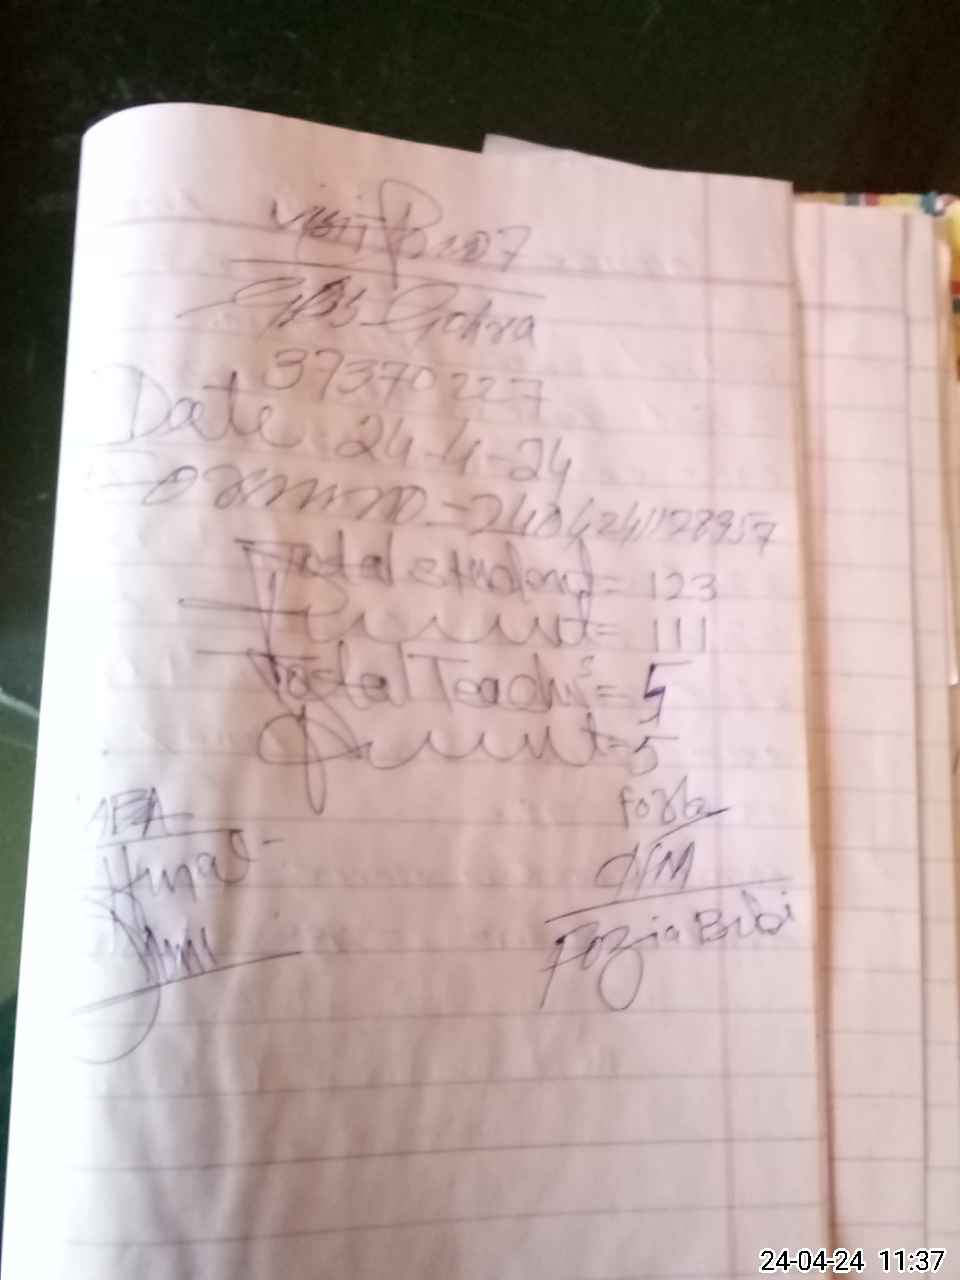 Visit Proof
GPS Gohra
37370227
Date 24-4-24
-2404241128957
Total student = 123
Present = 111
Total Teachs = 5
Present = 5
AEA
Fozia
HM
Fozia Bibi
24-04-24 11:37